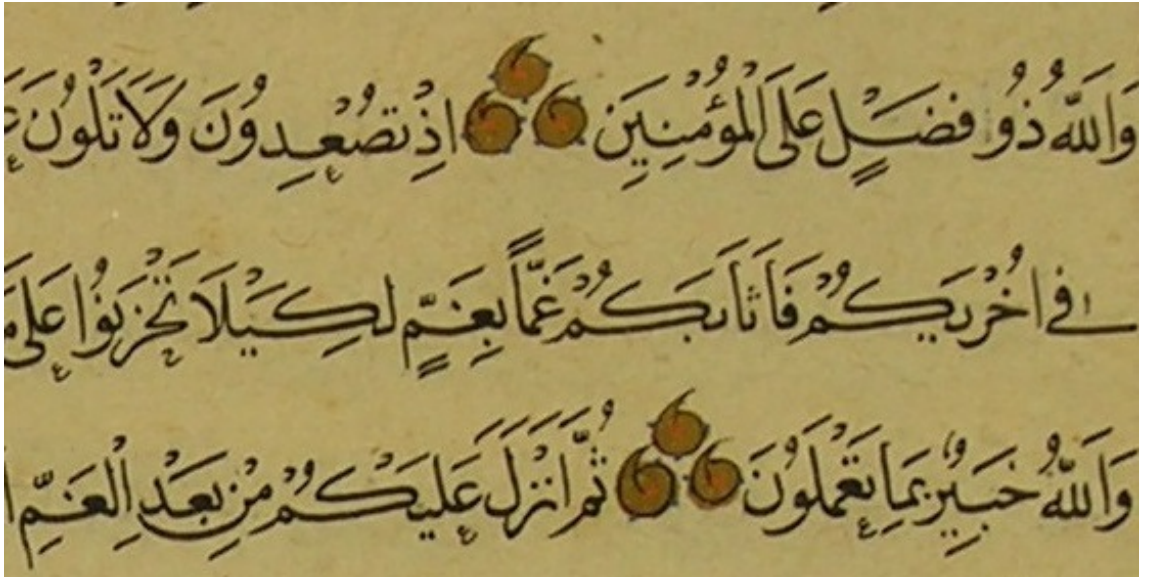 وَاللَّهُ ذُو فَضْلٍ عَلَى الْمُؤْمِنِينَ اِذْ تُصْعِدُونَ وَلَا تَلْوُنَ
فِي اُخْرٰيكُمْ فَاَثَابَكُمْ غَمًّا بِغَمٍّ لِكَيْلَا تَحْزَنُوا عَلَى
وَاللَّهُ خَبِيرٌ بِمَا تَعْمَلُونَ ثُمَّ اَنْزَلَ عَلَيْكُمْ مِنْ بَعْدِ الْغَمِّ